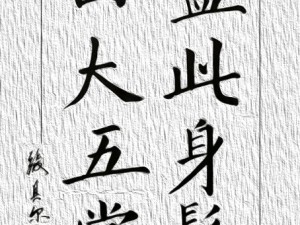 盖此身髮
四大五常